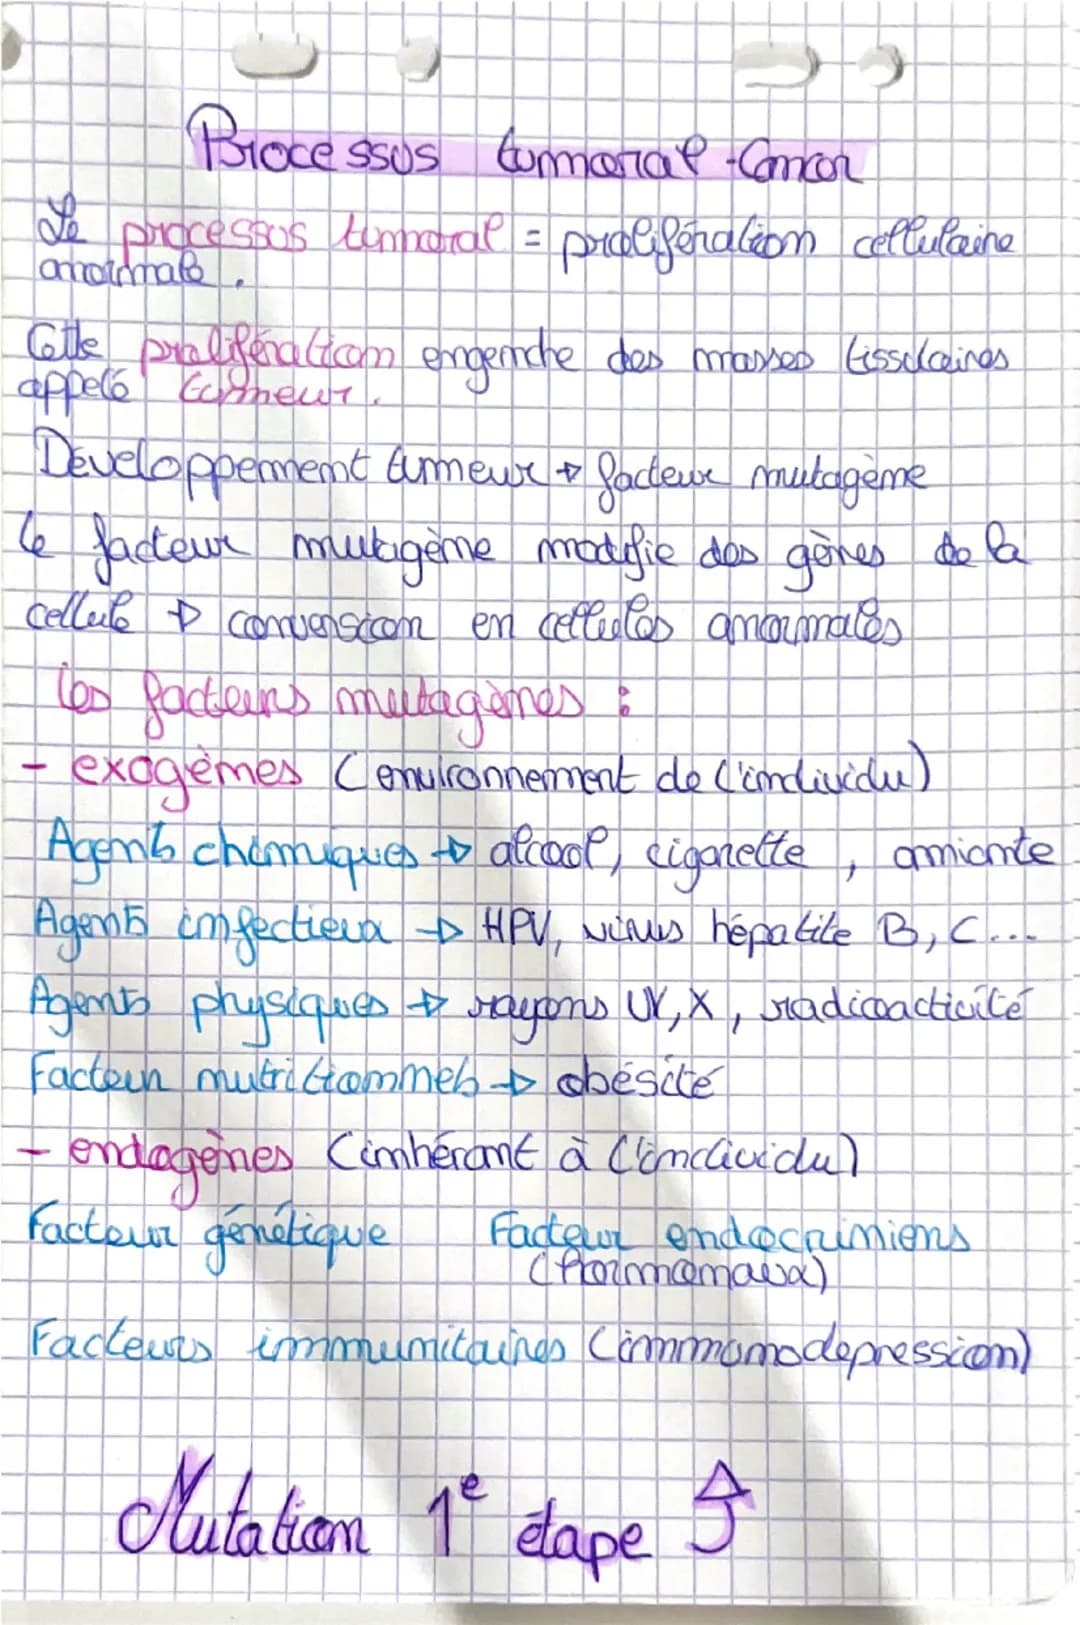 Processus tumoral - Cancer
Le processus tumoral = prolifération cellulaire
anormale.
Cette prolifération engendre des masses tissulaires
appelé tumeur.
Développement tumeur → facteur mutagène
le facteur mutagène modifie des gènes de la
cellule → conversion en cellules anormales
les facteurs mutagènes :
- exogènes (environnement de l'individu)
Agents chimiques → alcool, cigarette, amiante
Agents infectieux → HPV, virus hépatite B, C...
Agents physiques → rayons UV, X, radioacticité
Facteur nutritionnels → obésité
- endogènes (inhérant à l'individu)
Facteur génétique Facteur endocriniens
(hormonaux)
Facteurs immunitaires (immunodepression)
Mutation 1e étape ↑